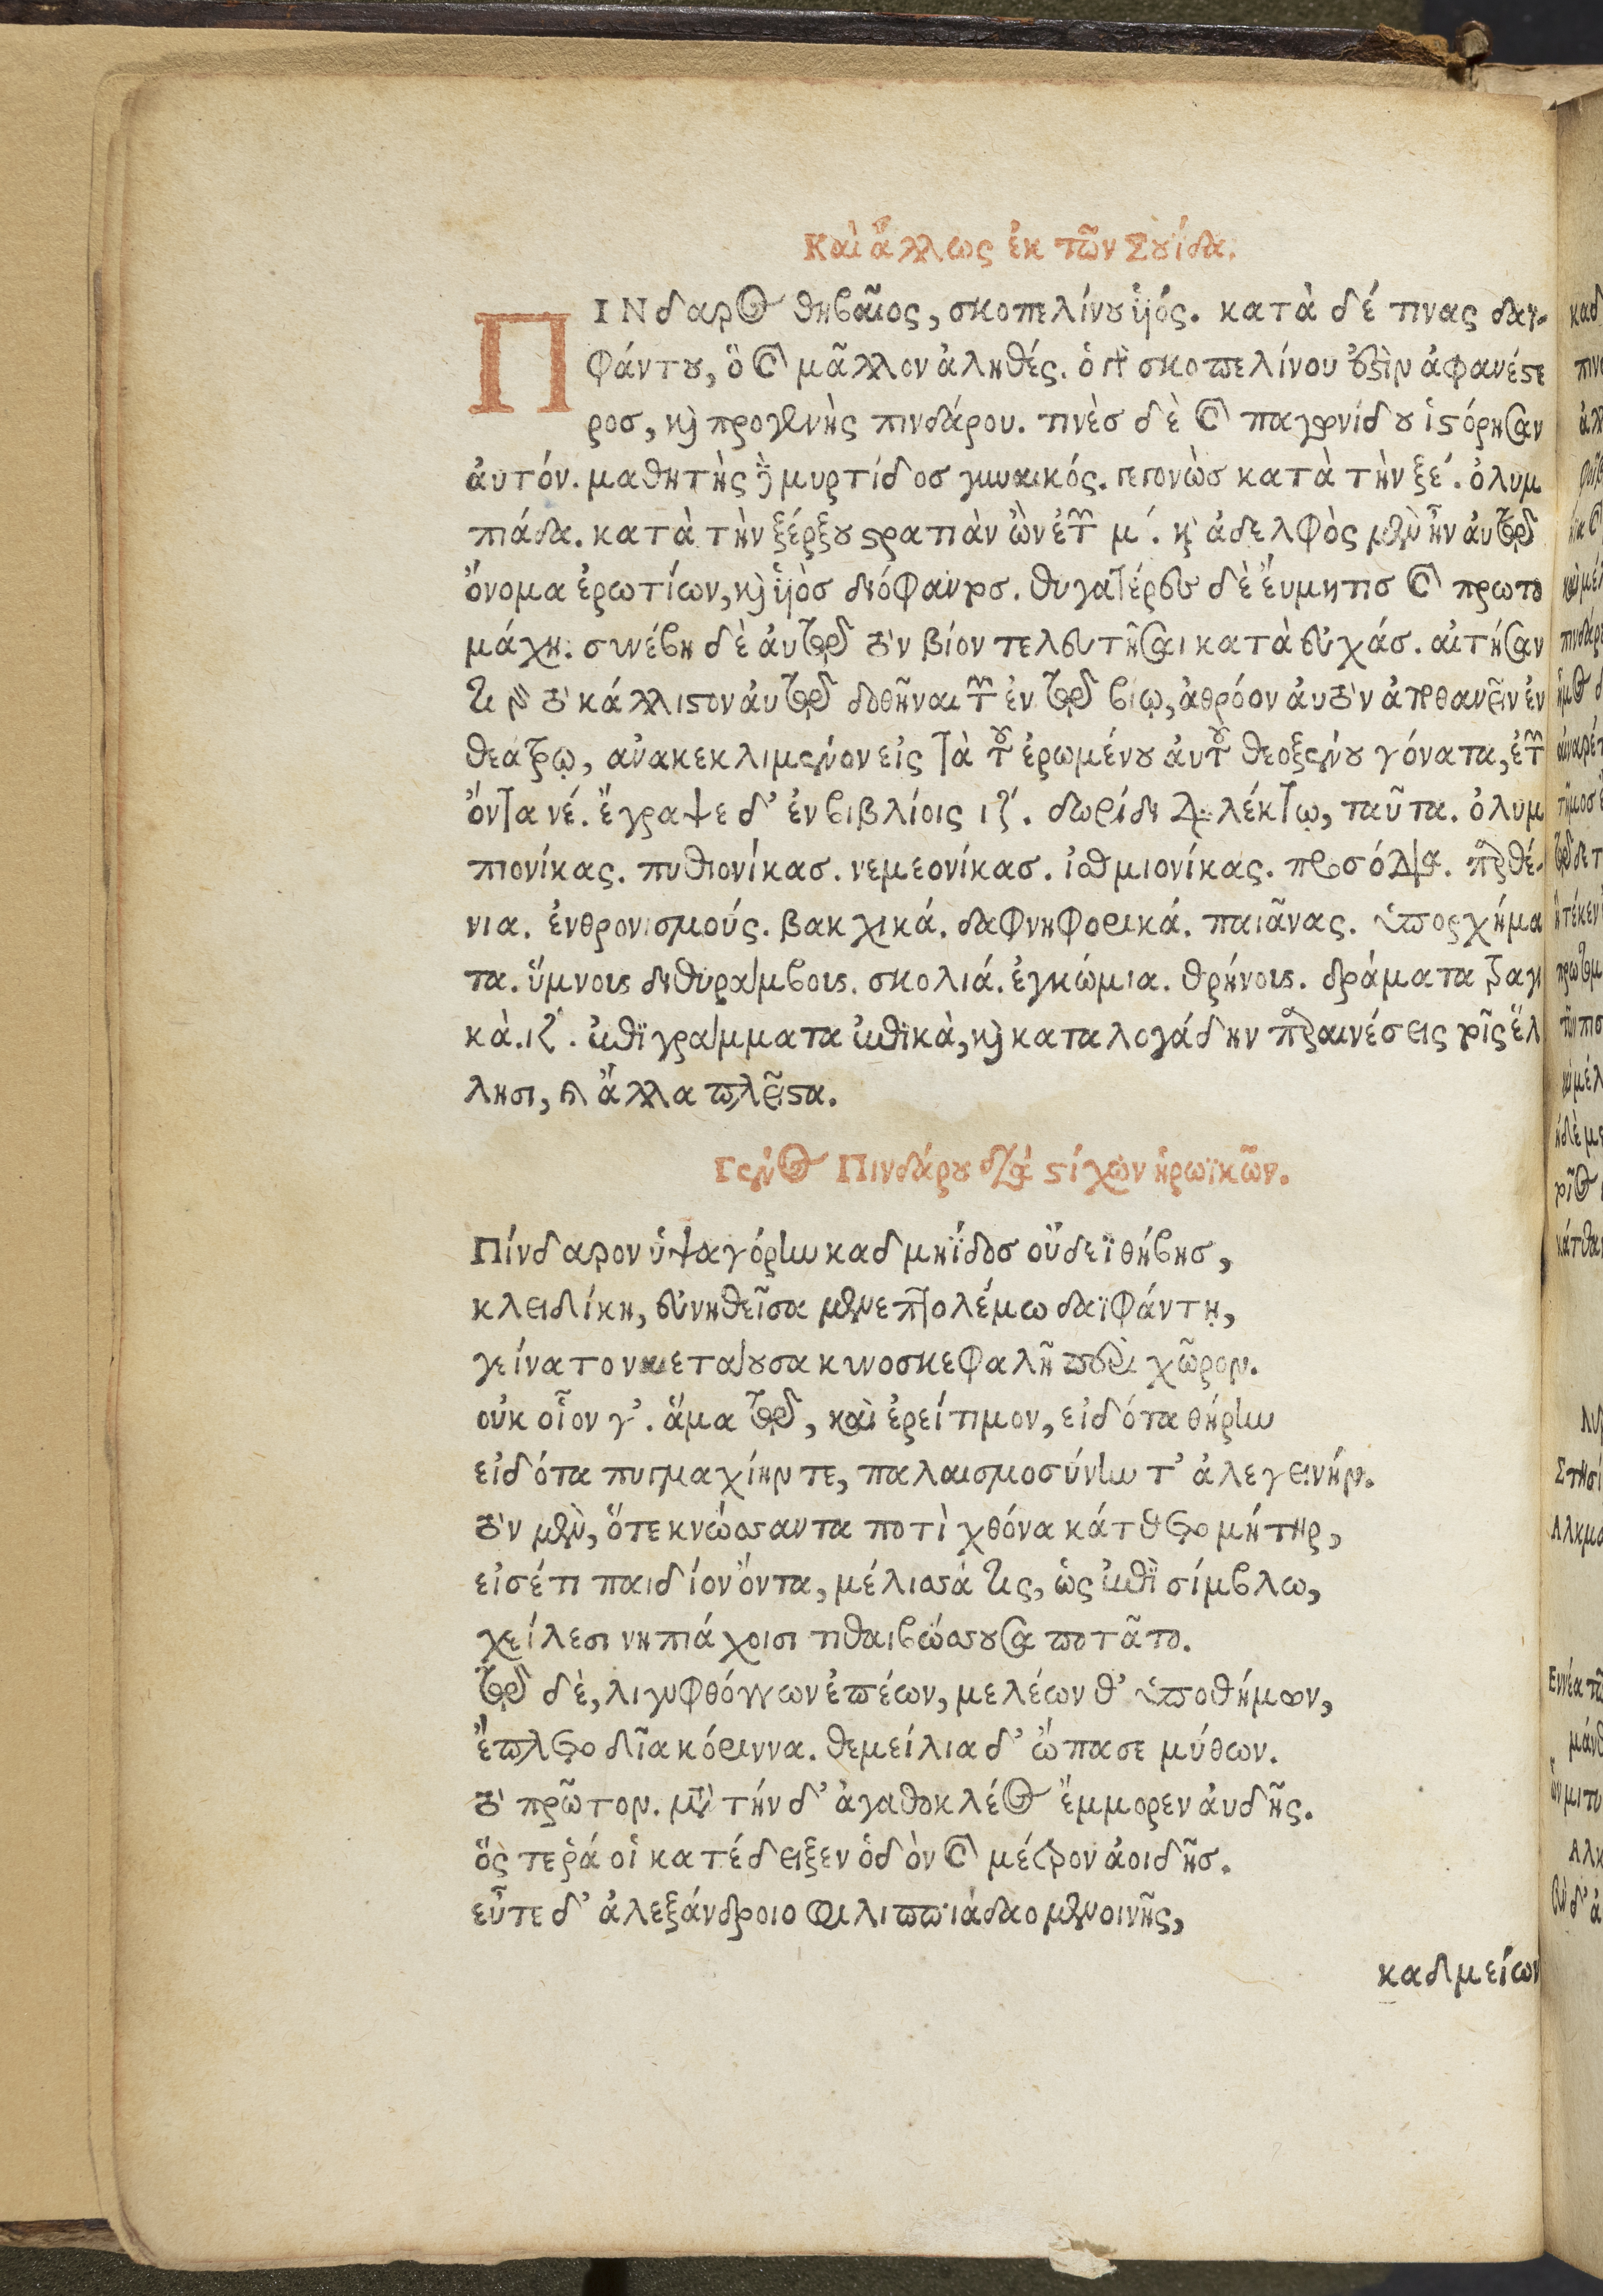 Καὶ ἄλλως ἐκ τῶν Σουίδα.
ΠΙΝδαρος θηβαῖος, σκοπελίνου ὑιός. κατὰ δέ τινας δαι-
φάντου, ὃ καὶ μᾶλλον ἀληθές. ὁ γὰρ σκοπελίνου ἐστὶν ἀφανέστε
ροσ, καὶ προσγενὴς πινδάρου. τινὲσ δὲ καὶ παγωνίδου ἱστόρησαν
ἀυτόν. μαθητὴς δὲ μυρτίδοσ γυναικός. γεγονὼσ κατὰ τὴν ξε΄. ὀλυμ
πιάδα. κατὰ τὴν ξέρξου στρατιὰν ὢν ἐτῶν μ΄. καὶ ἀδελφὸς μὲν ἦν ἀυτῷ
ὄνομα ἐρωτίων, καὶ ὑιὸσ διόφαντοσ. θυγατέρες δὲ ἔυμητισ καὶ πρωτο
μάχη. συνέβη δὲ ἀυτῷ τὸν βίον τελευτῆσαι κατὰ εὐχάσ. αἰτήσαν
τι γὰρ τὸ κάλλιστον ἀυτῷ δοθῆναι τῶν ἐν τῷ βίῳ, ἀθρόον ἀυτὸν ἀποθανεῖν ἐν
θεάτρῳ, ἀνακεκλιμένον εἰς τὰ τοῦ ἐρωμένου ἀυτοῦ θεοξένου γόνατα, ἐτῶν
ὄντα νέ. ἔγραψε δ' ἐν βιβλίοις ιζ΄. δωρίδι διαλέκτῳ, ταῦτα. ὀλυμ
πιονίκας. πυθιονίκασ. νεμεονίκασ. ἰσθμιονίκας. προσόδια. παρθέ-
νια. ἐνθρονισμούς. βακχικά. δαφνηφορικά. παιᾶνας. ὑποσχήμα
τα. ὕμνους διθυράμβους. σκολιά. ἐγκώμια. θρήνους. δράματα τραγι
κὰ.ιζ΄. ἐπιγράμματα ἐπικὰ, καὶ καταλογάδην παραινέσεις τοῖς ἕλ
λησι, καὶ ἄλλα πλεῖστα.
Γένος Πινδάρου διὰ στίχων ἡρωϊκῶν.
Πίνδαρον ὑψαγόρην καδμηΐδοσ οὔδεϊ θήβησ,
κλειδίκη, εὐνηθεῖσα μενεπτολέμω δαϊφάντῃ,
γείνατο ναιετάουσα κυνοσκεφαλῆ παρὰ χῶρον.
οὐκ οἶον γ'. ἅμα τῷ, καὶ ἐρείτιμον, εἰδότα θήρην
εἰδότα πυγμαχίην τε, παλαισμοσύνην τ' ἀλεγεινήν.
τὸν μὲν, ὅτε κνώσσαντα ποτὶ χθόνα κάτθετο μήτηρ,
εἰσέτι παιδίον ὄντα, μέλισσά τις, ὡς ἐπὶ σίμβλω,
χείλεσι νηπιάχοισι τιθαιβώσσουσα ποτᾶτο.
τῷ δὲ, λιγυφθόγγων ἐπέων, μελέων θ' ὑποθήμων,
ἔπλετο δῖα κόριννα. θεμείλια δ' ὤπασε μύθων.
τὸ πρῶτον. μετὰ τήν δ' ἀγαθοκλέος ἔμμορεν ἀυδῆς.
ὅς τε ῥά οἱ κατέδειξεν ὁδὸν καὶ μέτρον ἀοιδῆσ.
εὖτε δ' ἀλεξάνδροιο φιλιππιάδαο μενοινῆς,
καδμείων